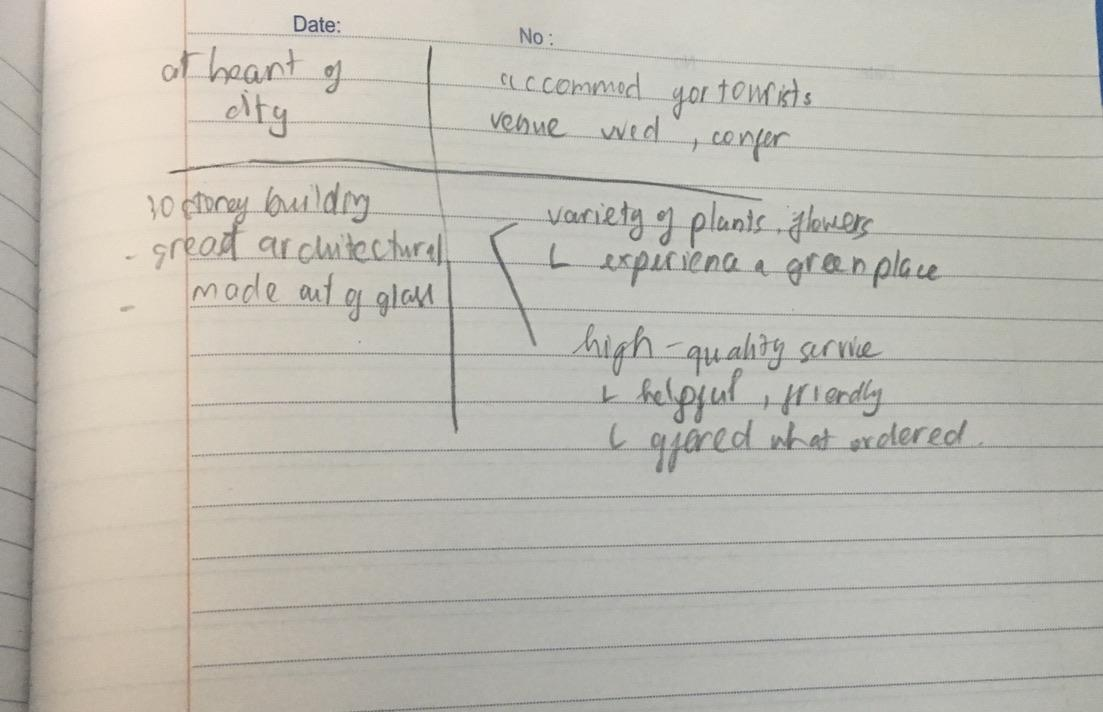 Date:
No:
at heart of
city
accommod for tourists
venue wed, confer
10 storey building
- great architectural
- made out of glass
variety of plants, flowers
└ experience a green place
high-quality service
└ helpful, friendly
└ offered what ordered.